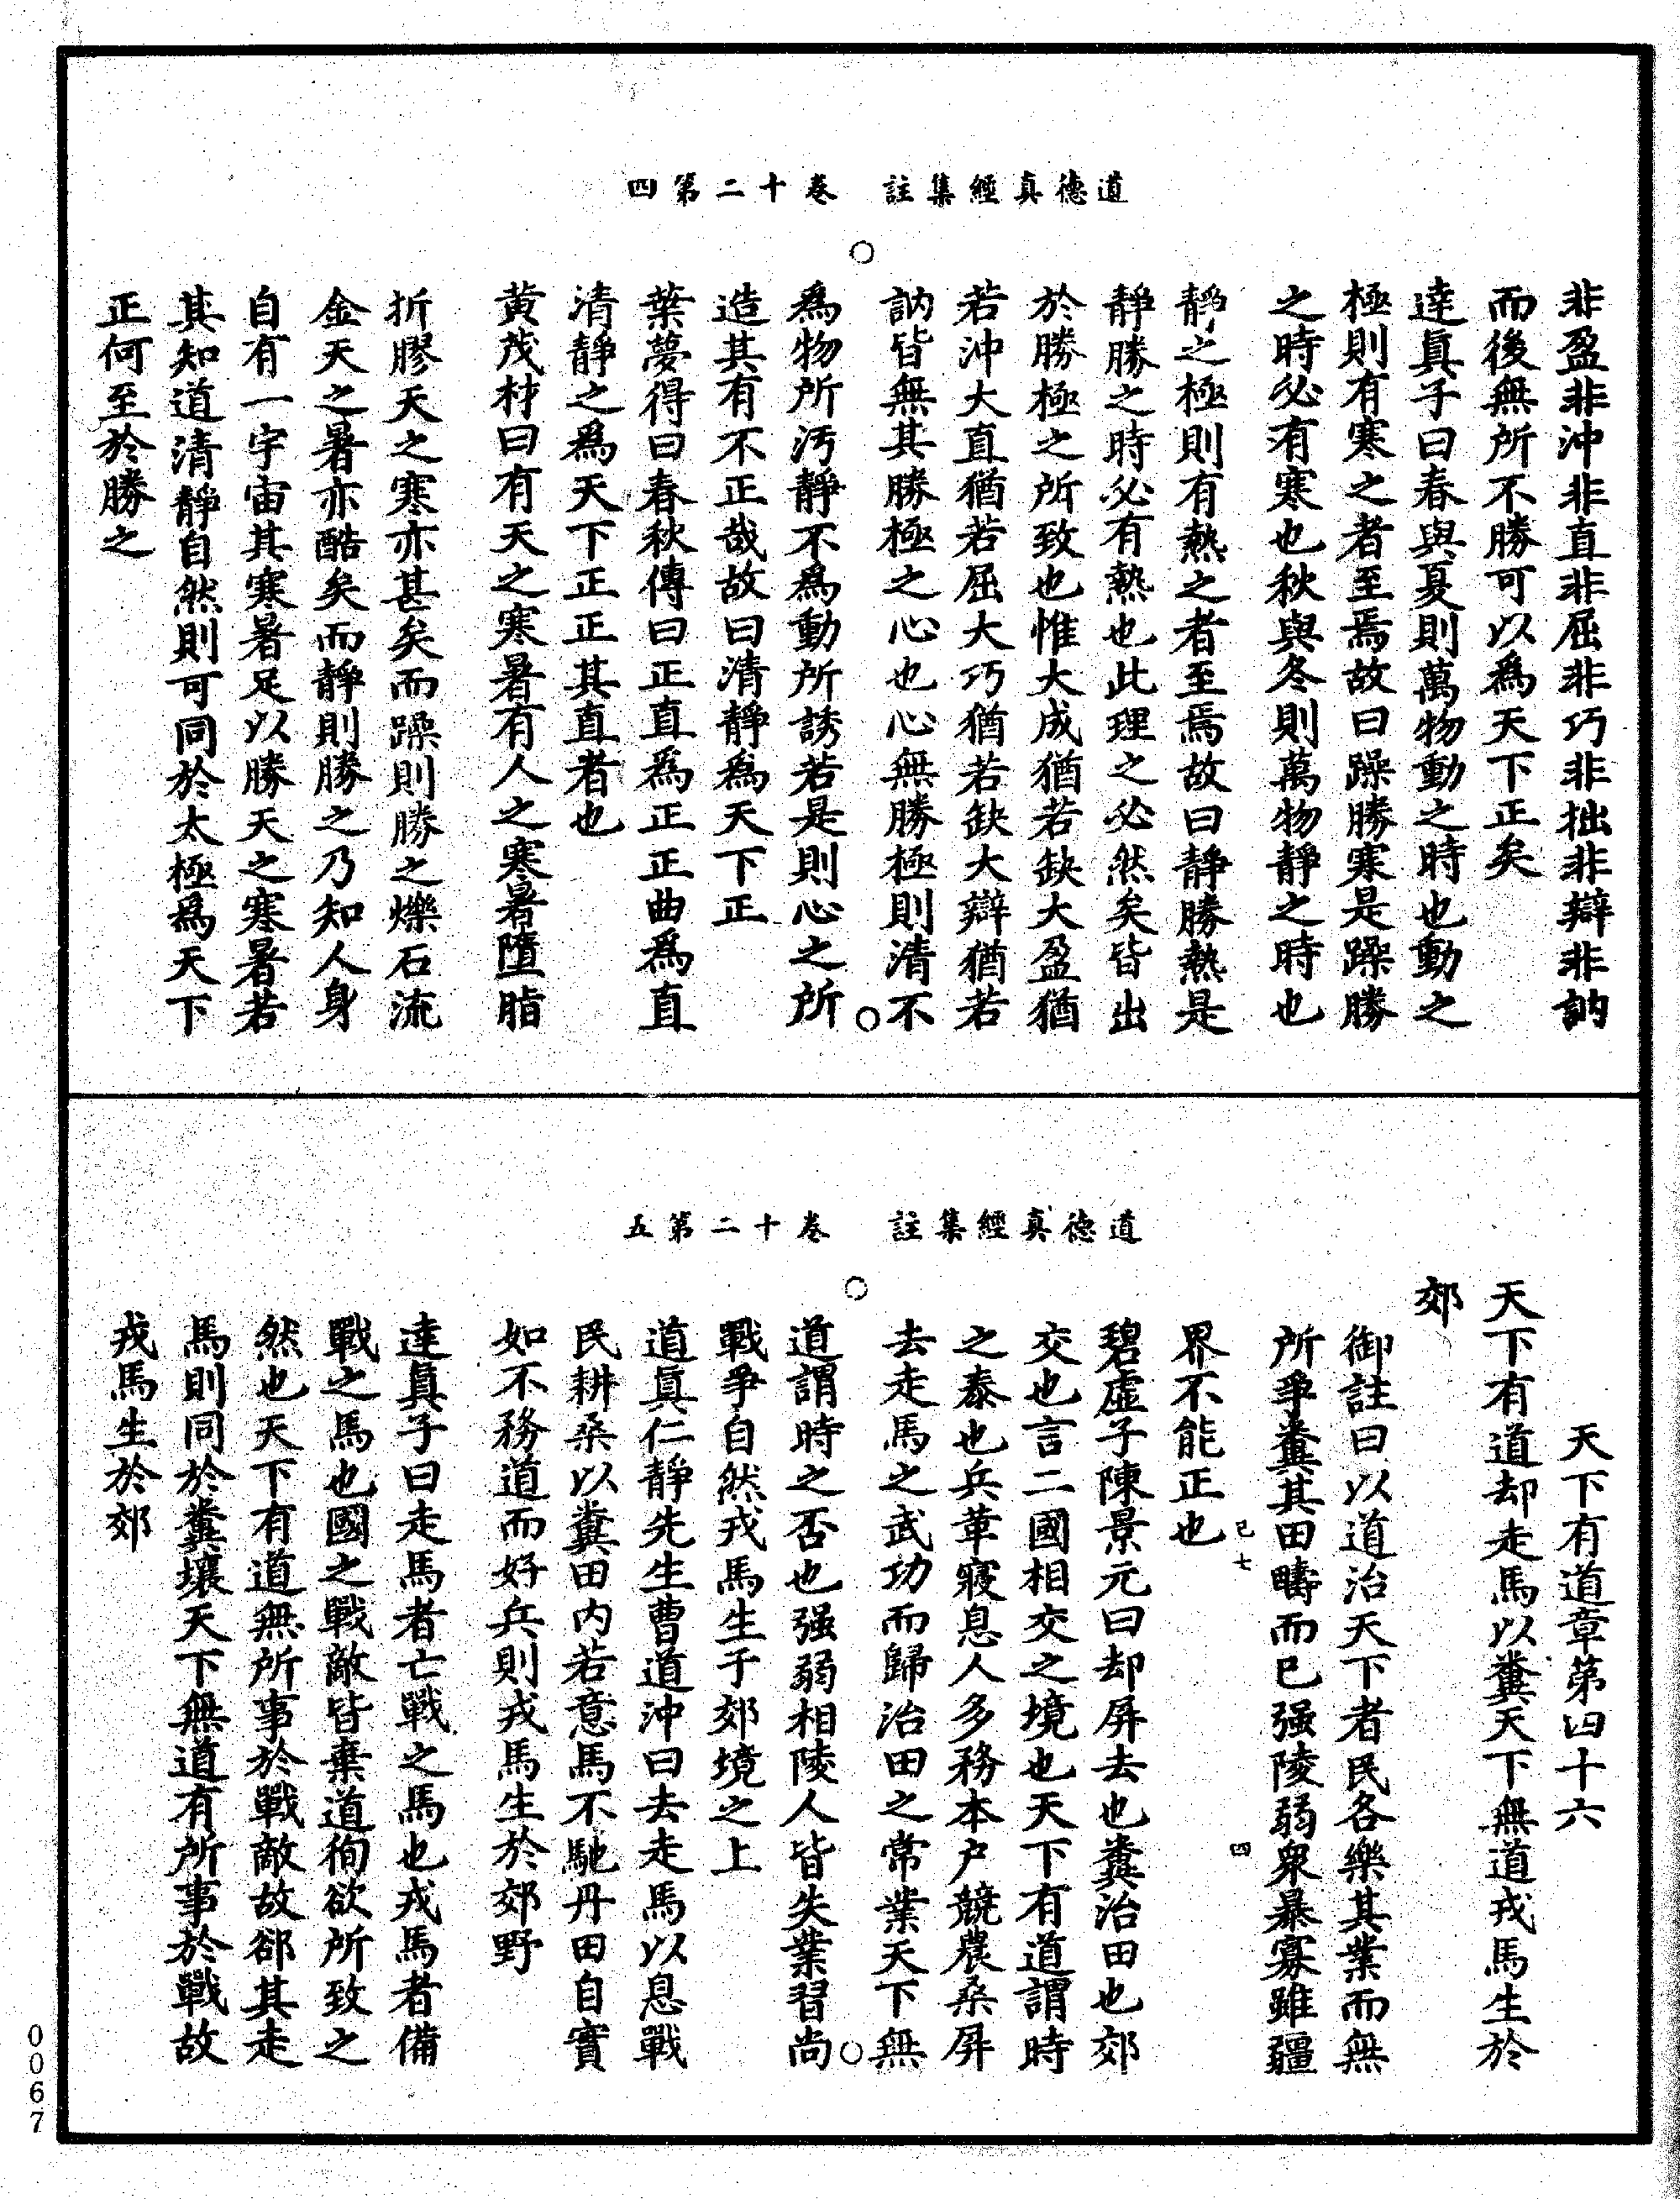 道德真經集註　卷十二第四
非盈非沖非直非屈非巧非拙非辯非訥
而後無所不勝可以爲天下正矣
達眞子曰春與夏則萬物動之時也動之
極則有寒之者至焉故曰躁勝寒是躁勝
之時必有寒也秋與冬則萬物靜之時也
靜之極則有熱之者至焉故曰靜勝熱是
靜勝之時必有熱也此理之必然矣皆出
於勝極之所致也惟大成猶若缺大盈猶
若沖大直猶若屈大巧猶若缺大辯猶若
訥皆無其勝極之心也心無勝極則清不
爲物所汚靜不爲動所誘若是則心之所
造其有不正哉故曰清靜爲天下正
葉夢得曰春秋傳曰正直爲正正曲爲直
清靜之爲天下正正其直者也
黄茂材曰有天之寒暑有人之寒暑墮脂
折膠天之寒亦甚矣而躁則勝之爍石流
金天之暑亦酷矣而靜則勝之乃知人身
自有一宇宙其寒暑足以勝天之寒暑若
其知道清靜自然則可同於太極爲天下
正何至於勝之
道德真經集註　卷十二第五
天下有道章第四十六
天下有道却走馬以糞天下無道戎馬生於
郊
御註曰以道治天下者民各樂其業而無
所爭糞其田疇而已强陵弱衆暴寡雖疆
己七　四
界不能正也
碧虛子陳景元曰却屏去也糞治田也郊
交也言二國相交之境也天下有道謂時
之泰也兵革寢息人多務本户競農桑屏
去走馬之武功而歸治田之常業天下無
道謂時之否也强弱相陵人皆失業習尚
戰爭自然戎馬生于郊境之上
道眞仁靜先生曹道沖曰去走馬以息戰
民耕桑以糞田内若意馬不馳丹田自實
如不務道而好兵則戎馬生於郊野
達眞子曰走馬者亡戰之馬也戎馬者備
戰之馬也國之戰敵皆棄道徇欲所致之
然也天下有道無所事於戰敵故郤其走
馬則同於糞壤天下無道有所事於戰故
戎馬生於郊
0067